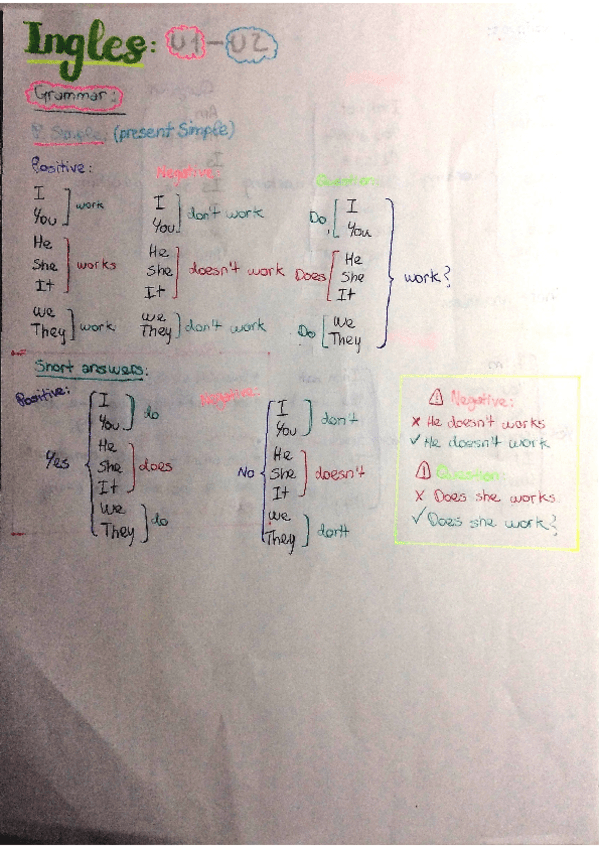 Ingles: U1-U2
Grammar:
P. Simple (present Simple)
Positive: Negative: Question:
I
You
work
He
She
It
works
We
They
work
I
You
don't work
He
She
It
doesn't work
We
They
don't work
Do
I
You
Does
He
She
It
Do
We
They
work?
Short answers:
Positive:
Yes
I
You
do
He
She
It
does
We
They
do
Negative:
No
I
You
don't
He
She
It
doesn't
We
They
don't
⚠ Negative:
✗ He doesn't works
✓ He doesn't work
⚠ Question:
✗ Does she works
✓ Does she work?